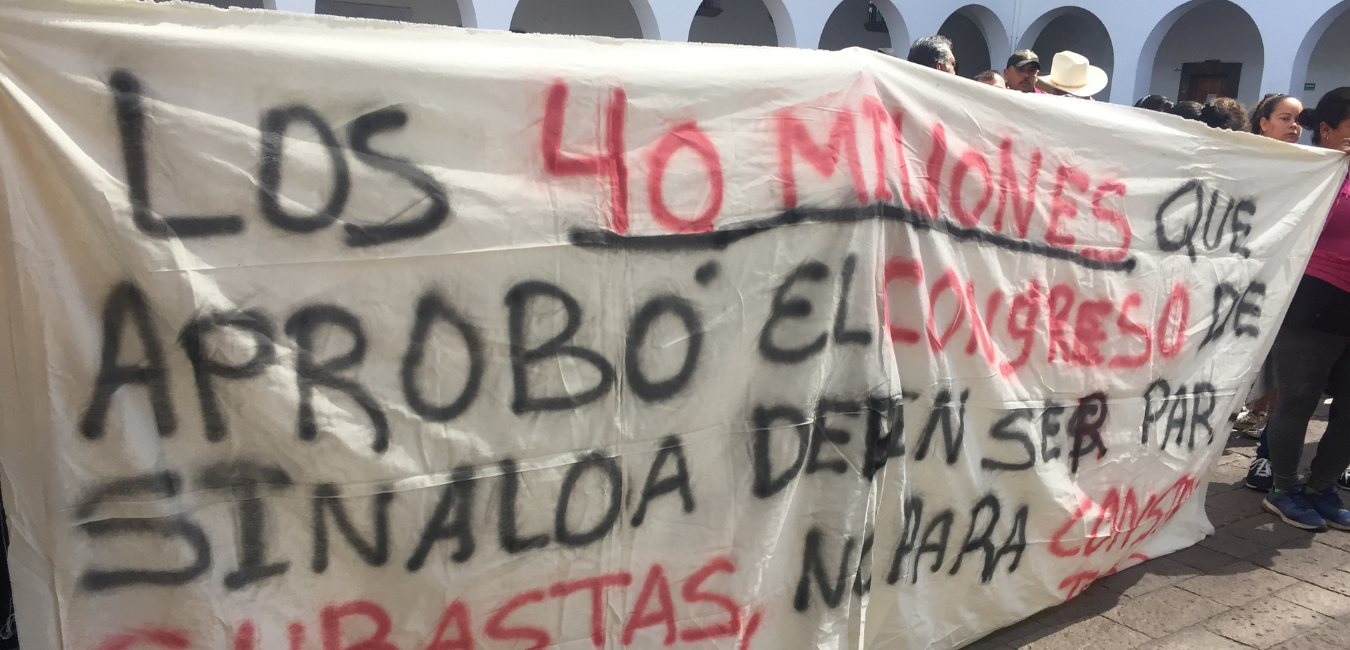 LOS 40 MILLONES QUE
APROBÓ EL CONGRESO DE
SINALOA DEBEN SER PAR
SUBASTAS, NO PARA